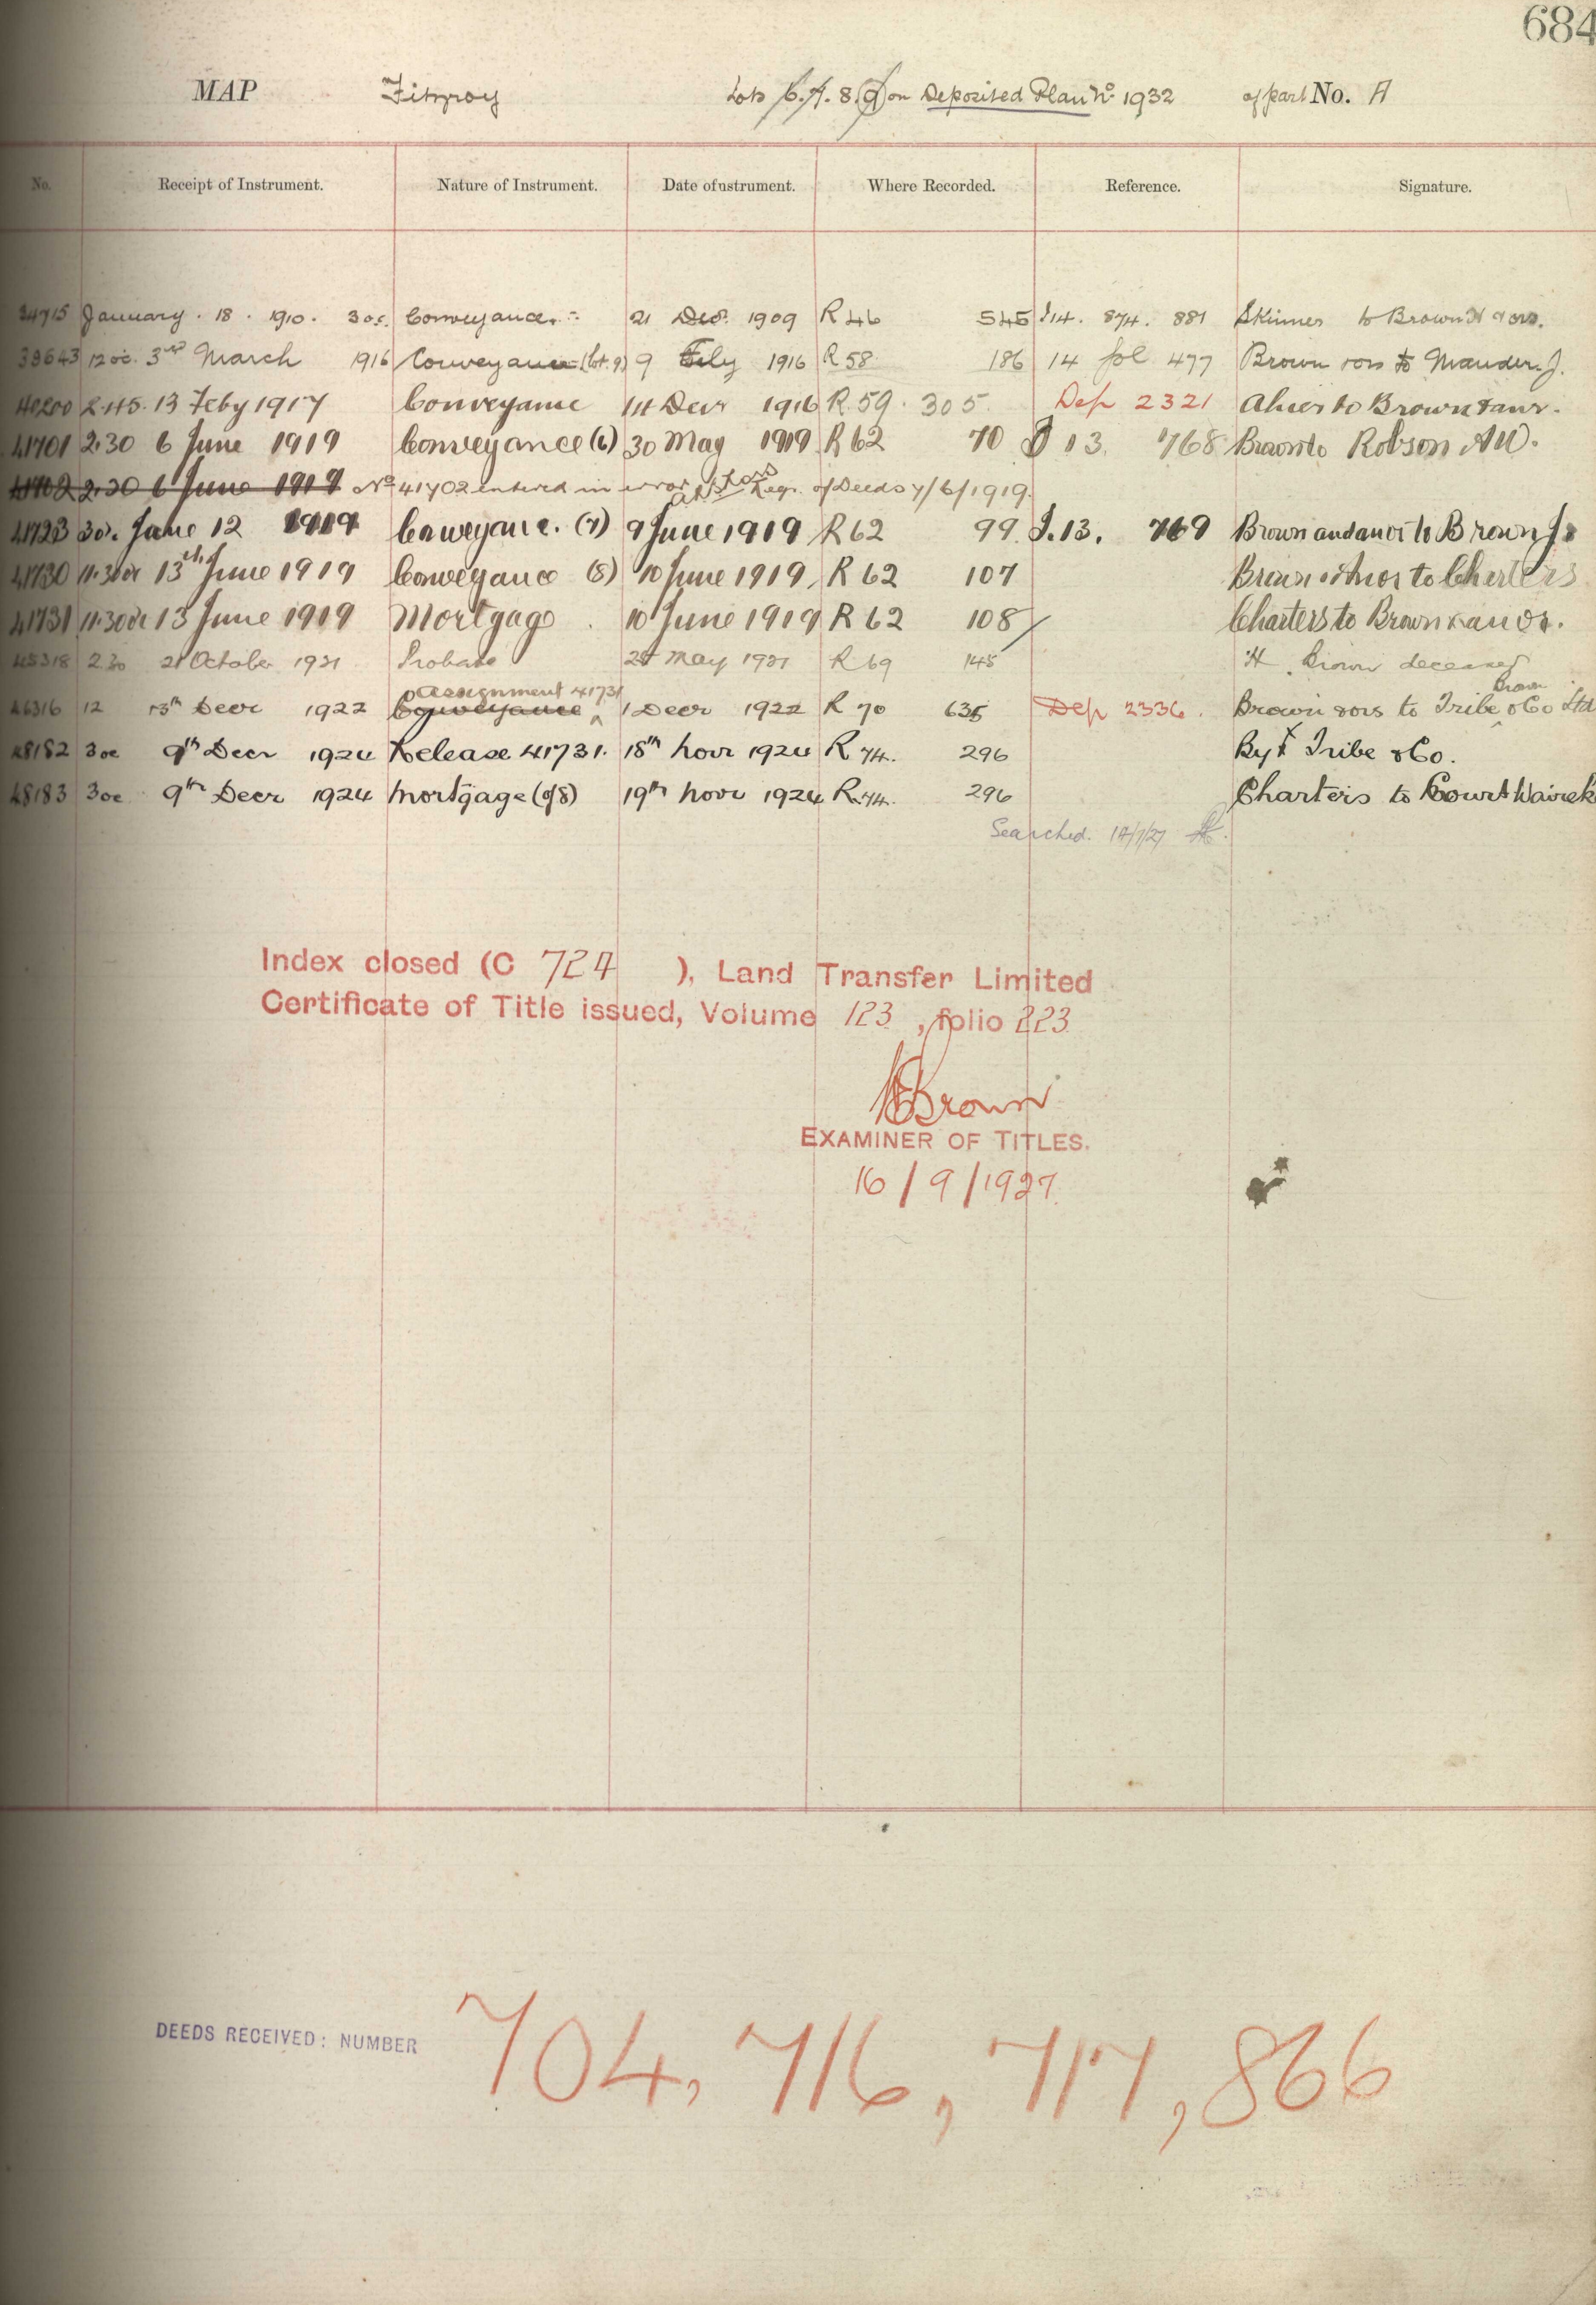 684
MAP Fitzroy Lots 6. 7. 8. 9 on Deposited Plan No 1932 of part No. A
No. Receipt of Instrument. Nature of Instrument. Date of ustrument. Where Recorded. Reference. Signature.
34715 January . 18 . 1910 . 3 oc. Conveyance. 21 Decr. 1909 R 46 545 I 14. 874. 881 Skinner to Brown H & ors.
38643 12 oc. 3rd March 1916 Conveyance (lot 9) 9 Feby 1916 R 58 186 14 fol 477 Brown & ors to Mander. J.
40200 2.45. 13 Feby 1917 Conveyance 1st Decr 1916 R 59. 305. Dep 2321 to Brown & anr.
41701 2.30 6 June 1919 Conveyance (6) 30 May 1919 R 62 70 I 13. 768 Brown to Robson A W.
41702 2.30 6 June 1919 No 41702 entered in error Regr. of Deeds 7/6/1919.
41723 3 oc. June 12 1919 Conveyance. (7) 9 June 1919 R 62 99. I. 13. 769 Brown and anor to Brown J.
41730 11.30 oc 13th June 1919 Conveyance (8) 10 June 1919 R 62 107 Brown & Anor to Charters
41731 11.30 oc 13 June 1919 Mortgage 10 June 1919 R 62 108 Charters to Brown & anor.
45318 2.30 21 October 1921 Probate 25 May 1921 R 69 145 H. Brown deceased
Assignment 41731 Brown
46316 12 13th Decr 1922 Conveyance 1 Decr 1922 R 70 635 Dep 2336. Brown & ors to Tribe & Co Ltd
48182 3 oc 9th Decr 1924 Release 41731. 18th Novr 1924 R 74. 296 By Tribe & Co.
48183 3 oc 9th Decr 1924 Mortgage (of 8) 19th Novr 1924 R. 74. 296 Charters to Court Waireka
Searched. 14/7/27
Index closed (C 724 ), Land Transfer Limited
Certificate of Title issued, Volume 123 , folio 223
Brown
EXAMINER OF TITLES.
16/9/1927.
DEEDS RECEIVED: NUMBER 704, 716, 717, 866